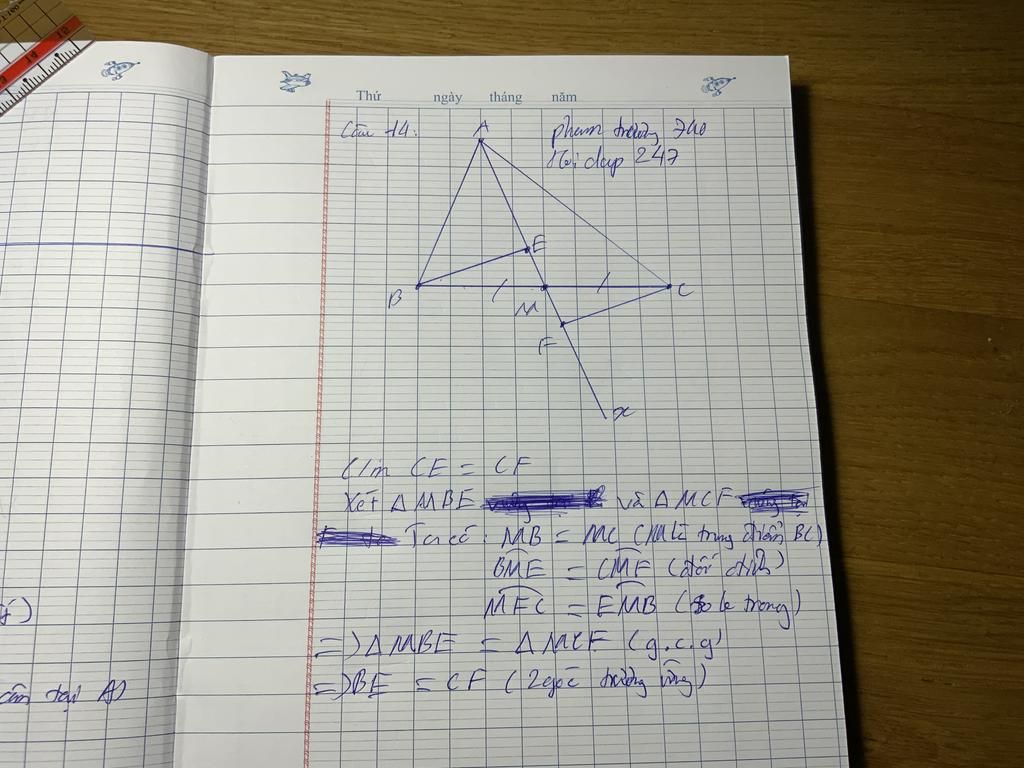 Thứ ngày tháng năm
Câu 14:
phạm trường 740
Hỏi đáp 247
A
E
B
M
C
F
x
C/m CE = CF
Xét Δ MBE và Δ MCF
Ta có: MB = MC (M là trung điểm BC)
BME = CMF (đối đỉnh)
MFC = EMB (so le trong)
=) Δ MBE = Δ MCF (g.c.g)
=) BE = CF (2 góc tương ứng)
cân tại A)